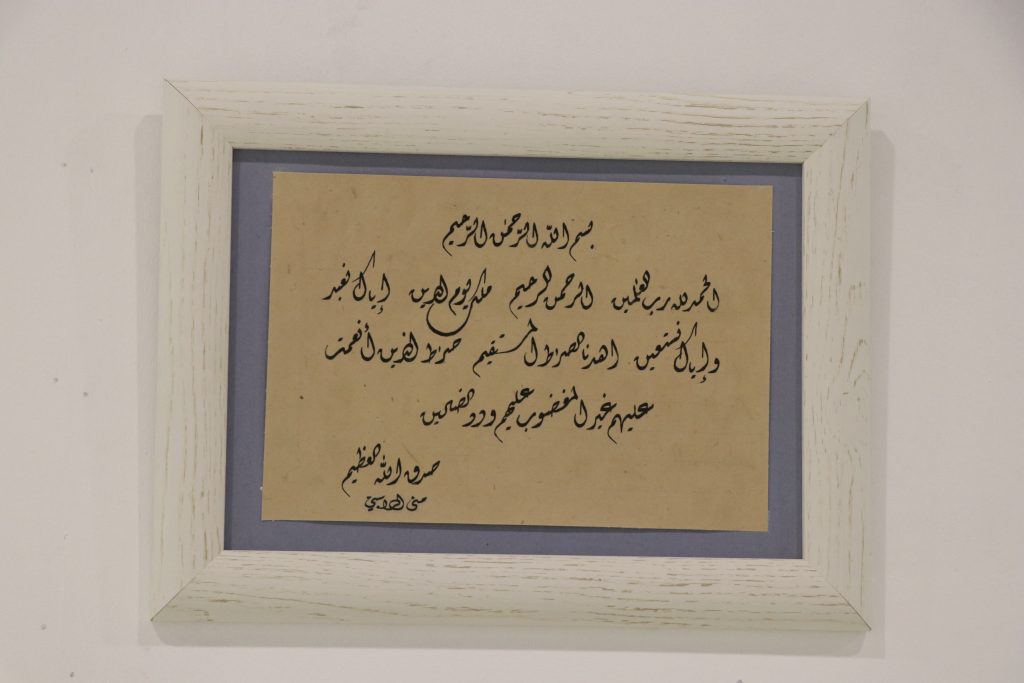 بسم الله الرحمن الرحيم
الحمد لله رب العلمين الرحمن الرحيم ملك يوم الدين إياك نعبد
وإياك نستعين اهدنا الصرط المستقيم صرط الذين أنعمت
عليهم غير المغضوب عليهم ولا الضالين
صدق الله العظيم
منى